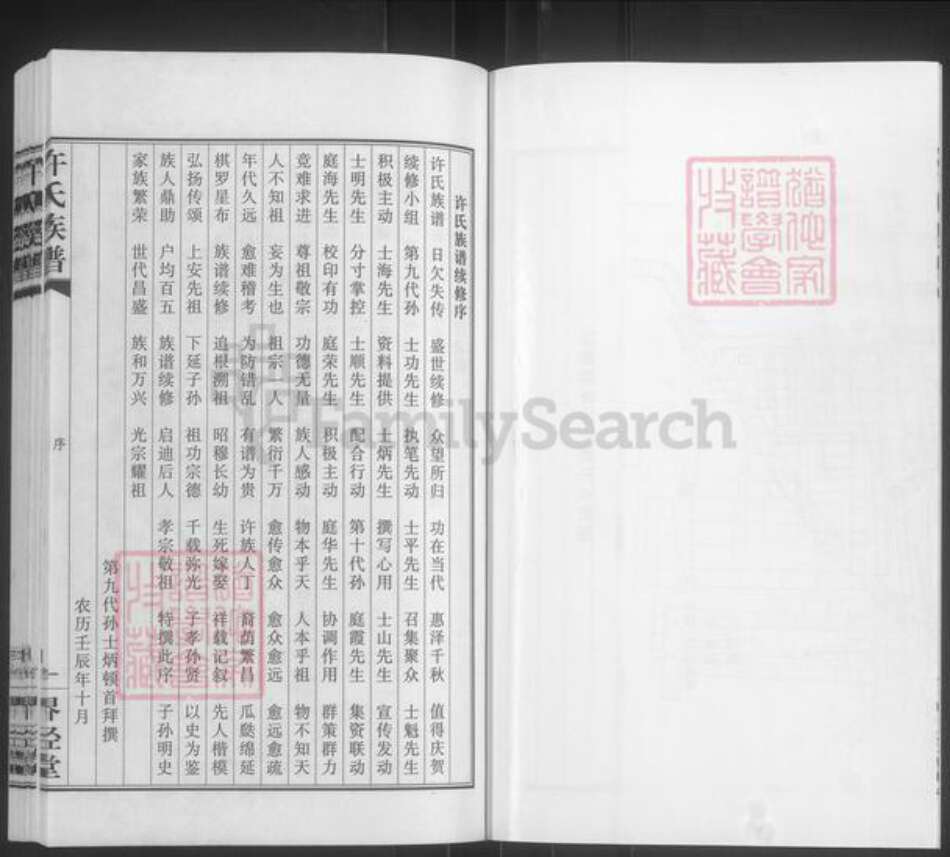 许氏族谱续修序
许氏族谱 日欠失传 盛世续修 众望所归 功在当代 惠泽千秋 值得庆贺
续修小组 第九代孙 士功先生 执笔先动 士平先生 召集聚众 士魁先生
积极主动 士海先生 资料提供 士炳先生 撰写心用 士山先生 宣传发动
士明先生 分寸掌控 士顺先生 配合行动 第十代孙 庭霞先生 集资联动
庭海先生 校印有功 庭荣先生 积极主动 庭华先生 协调作用 群策群力
竟难求进 尊祖敬宗 功德无量 族人感动 物本乎天 人本乎祖 物不知天
人不知祖 妄为生也 祖宗一人 繁衍千万 愈传愈众 愈众愈远 愈远愈疏
年代久远 愈难稽考 为防错乱 有谱为贵 许族人丁 裔荫繁昌 瓜瓞绵延
棋罗星布 族谱续修 追根溯祖 昭穆长幼 生死嫁娶 祥载记叙 先人楷模
弘扬传颂 上安先祖 下延子孙 祖功宗德 千载弥光 子孝孙贤 以史为鉴
族人鼎助 户均百五 族谱续修 启迪后人 孝宗敬祖 特撰此序 子孙明史
家族繁荣 世代昌盛 族和万兴 光宗耀祖
第九代孙士炳顿首拜撰
农历壬辰年十月
许氏族谱
序
一
界经堂
犹他家
谱学会
收藏
FamilySearch